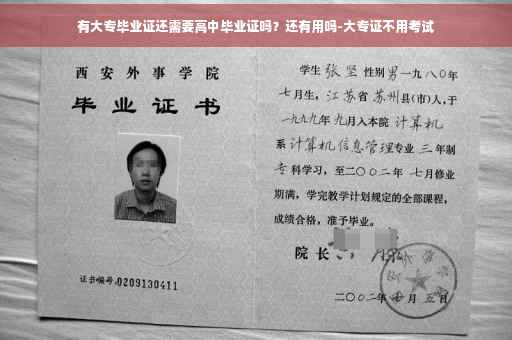 有大专毕业证还需要高中毕业证吗？还有用吗-大专证不用考试
西安外事学院
毕业证书
证书编号:0209130411
学生 张坚 性别 男 一九八〇年
七月生，江苏省 苏州 县(市)人，于
一九九九年 九月入本院 计算机
系 计算机信息管理 专业 三 年制
专科学习，至二〇〇二年 七月修业
期满，学完教学计划规定的全部课程，
成绩合格，准予毕业。
院长
二〇〇二年 七月 五日